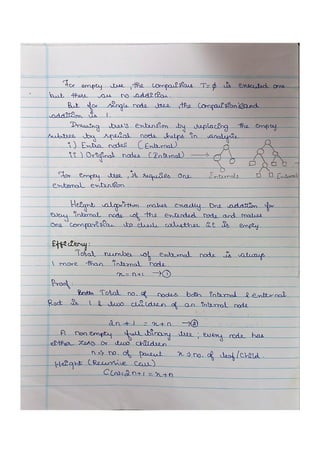 For empty tree, the comparison T=φ is executed one
but there are no addition.
But for single node tree, the comparison and
addition is 1.
Drawing tree's extention by replacing the empty
subtree by special node helps in analysis
i) Extra nodes (External)
ii) Original nodes (Internal) →
For empty tree, it requires one Internals External
external extention
Height algorithm makes exactly One addition for
every internal node of the extended node and makes
one comparision to check whether it is empty.
Efficiency:
Total number of external node is always
1 more than internal node.
x = n+1 → ①
Proof:
Total no. of nodes both internal & external
Root is 1 & two children of an internal node
2n + 1 = x + n → ②
A non empty full binary tree, every node has
either zero or two children
n → no. of parent x → no. of leaf/child.
Height (Recursive Call)
C(n) = 2n+1 = x+n